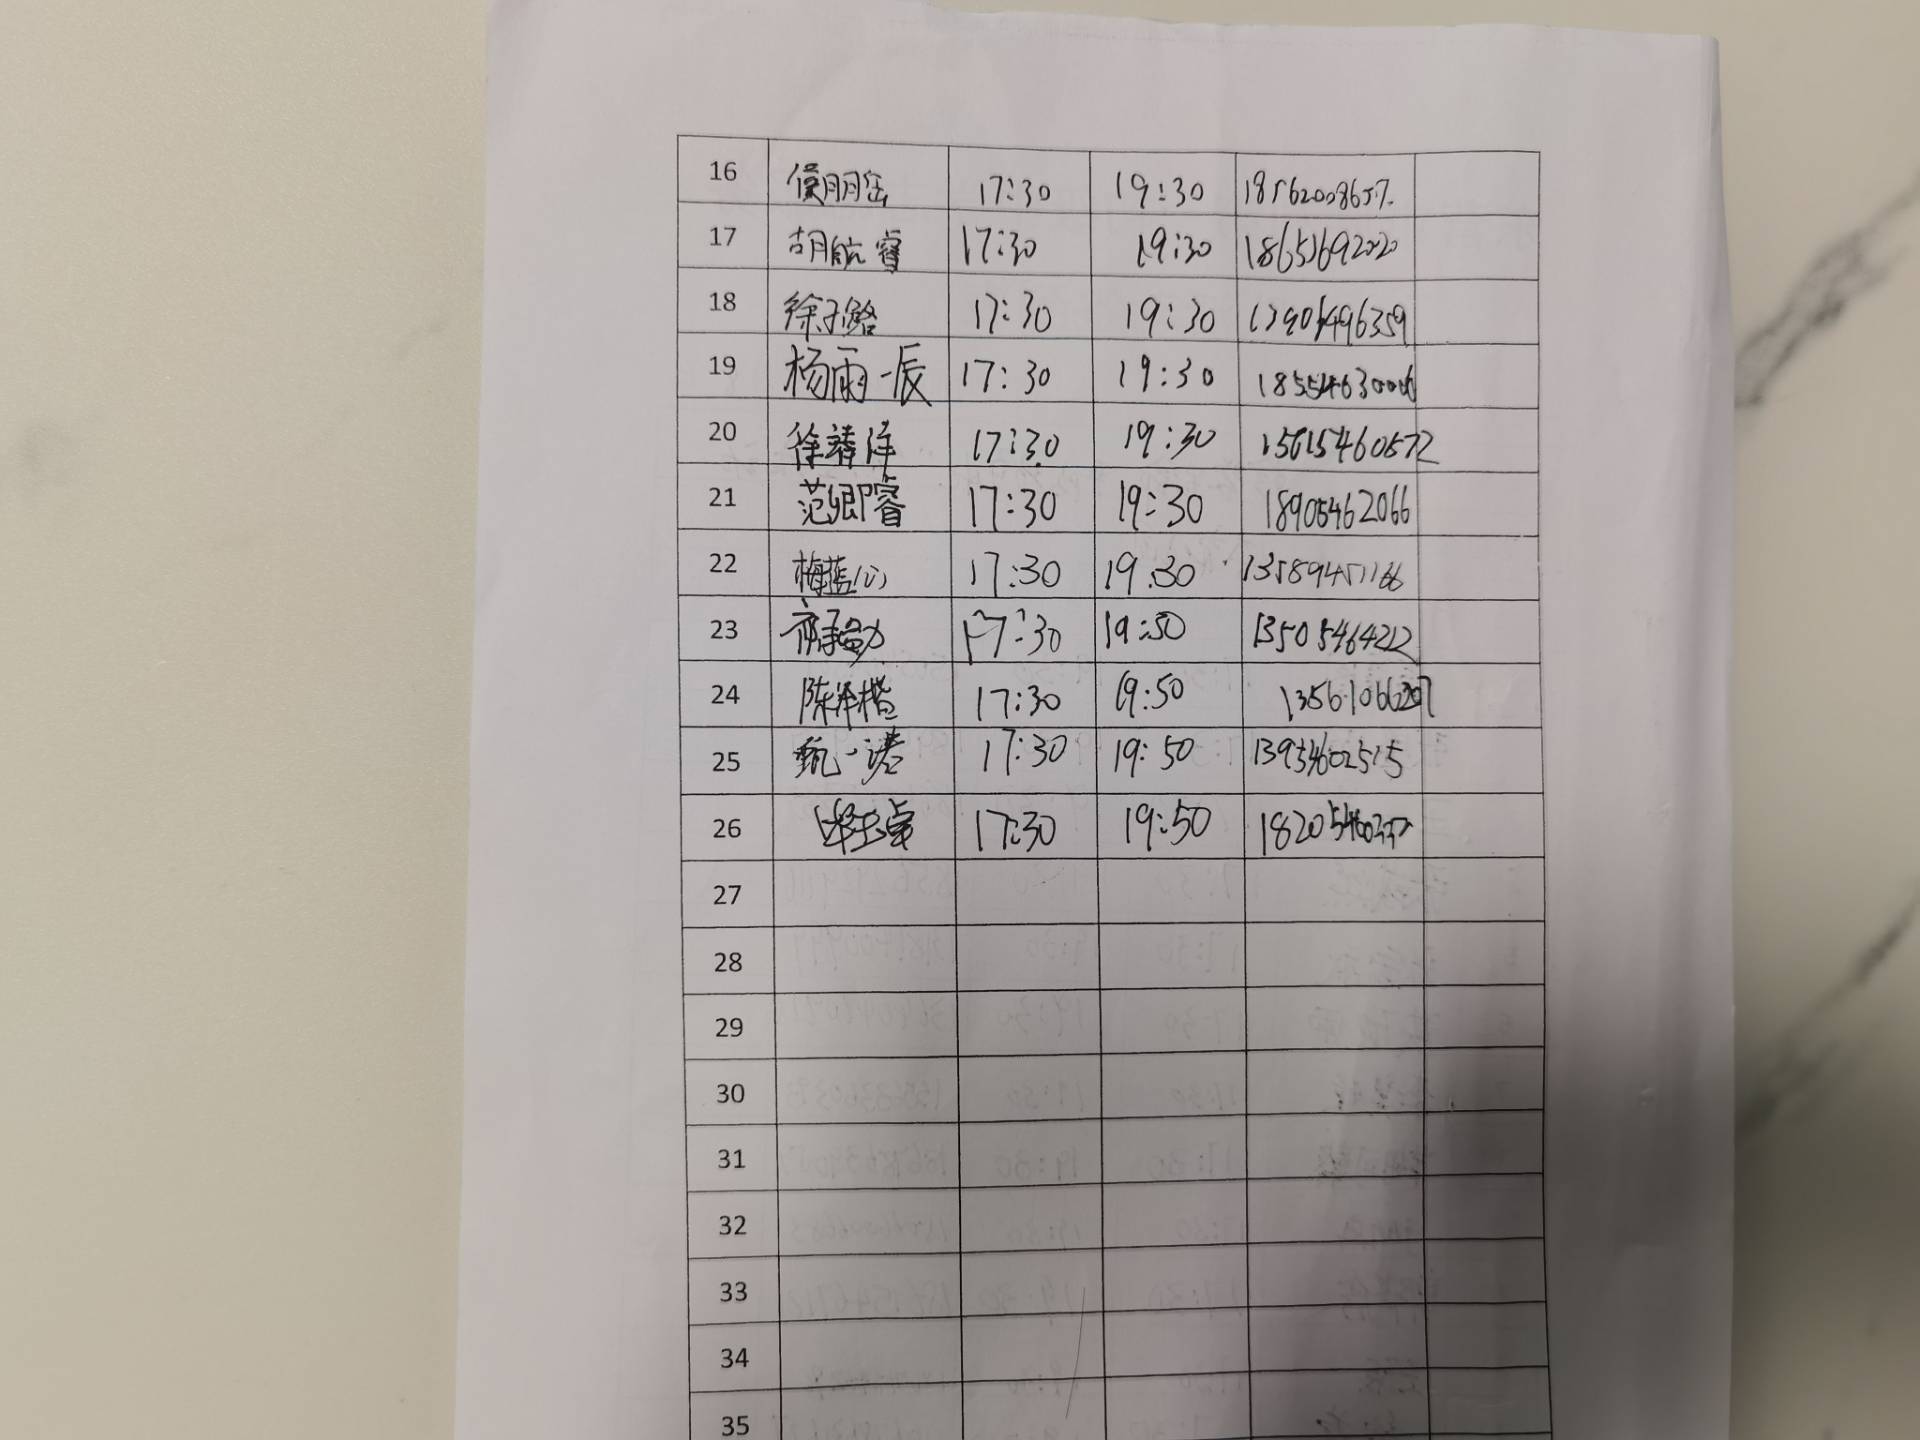 16 侯朋岳 17:30 19:30 18562008657
17 胡航睿 17:30 19:30 18653692020
18 徐子璐 17:30 19:30
19 杨雨辰 17:30 19:30 18554630006
20 徐靖洋 17:30 19:30 15615460572
21 范卿睿 17:30 19:30 18905462066
22 17:30 19:30 13589451166
23 17:30 19:50 13505464212
24 陈泽楷 17:30 19:50
25 甄一诺 17:30 19:50 13954602515
26 17:30 19:50
27
28
29
30
31
32
33
34
35